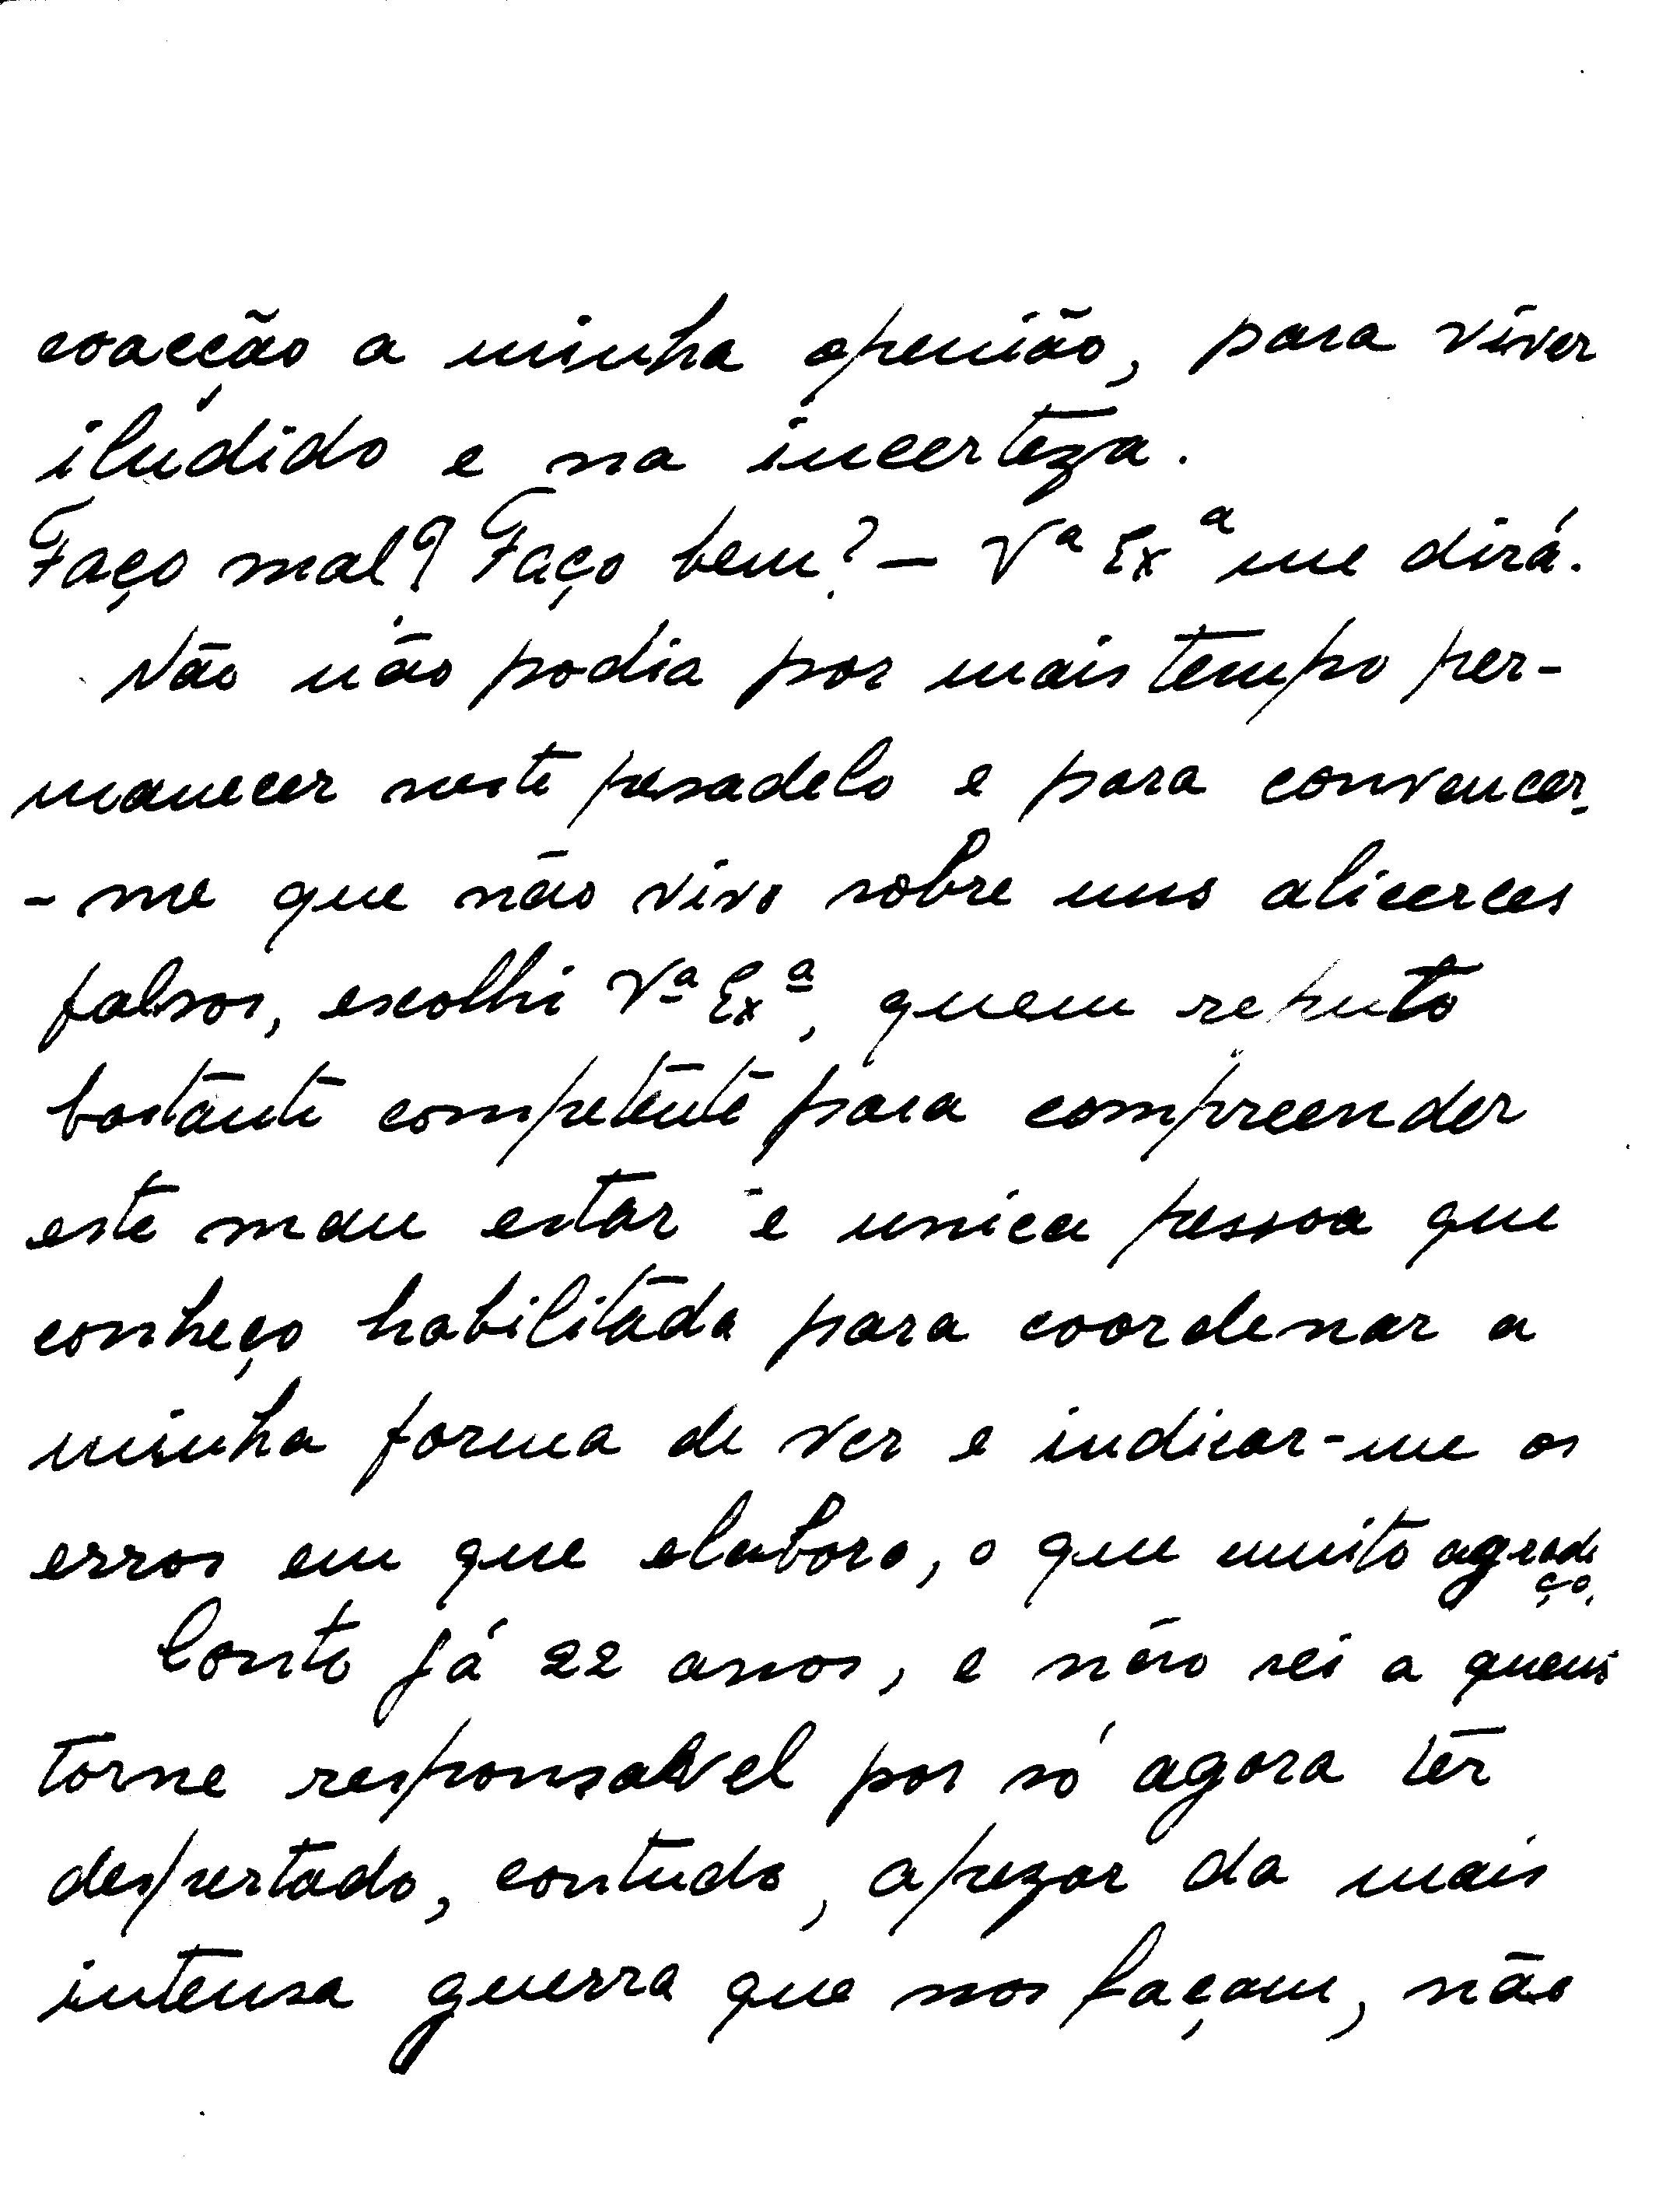 coacção a minha openião, para viver
iludido e na incerteza.
Faço mal? Faço bem? — Vª Exª me dirá.
Não não podia por mais tempo per-
manecer neste pesadelo e para convencer-
-me que não vivo sobre uns alicerces
falsos, escolhi Vª Exª, quem reputo
bastante competente para compreender
este mau estar e unica pessoa que
conheço habilitada para coordenar a
minha forma de ver e indicar-me os
erros em que elaboro, o que muito agrade
ço.
Conto já 22 anos, e não sei a quem
torne responsavel por só agora ter
despertado, contudo, apezar da mais
intensa guerra que nos façam, não